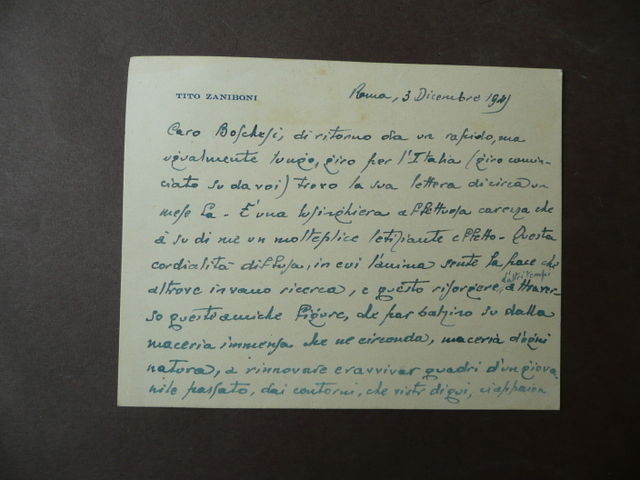 TITO ZANIBONI
Roma, 3 Dicembre 194
Caro Boschesi, di ritorno da un rapido, ma
ugualmente lungo, giro per l'Italia (giro comin-
ciato su da voi) trovo la sua lettera di circa un
mese fa - È una lusinghiera affettuosa carezza che
à su di me un molteplice letiziante effetto - Questa
cordialità diffusa, in cui l'anima sente la pace che
altrove invano ricerca, e questo risorgere, d'altri tempi attraver-
so queste amiche figure, che par balzino su dalla
maceria immensa che ne circonda, maceria d'ogni
natura, a rinnovare e ravvivar quadri d'un giova-
nile passato, dai contorni, che visti di qui, ci appaion